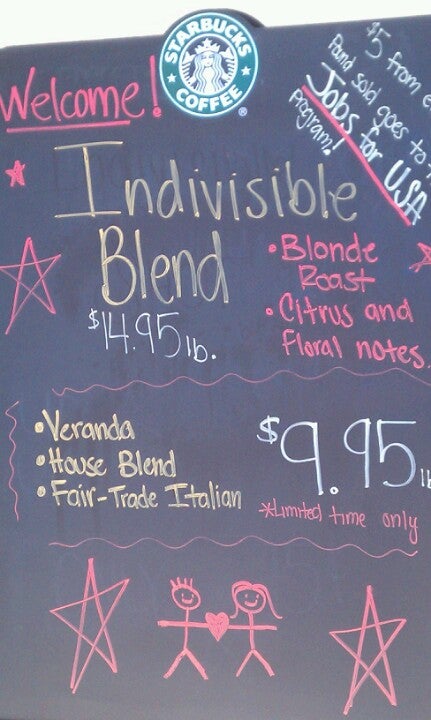 STARBUCKS
COFFEE
®
Welcome!
$5 from
Pound sold goes to
Jobs for USA
Program!
Indivisible
Blend
$14.95 lb.
•Blonde
Roast
•Citrus and
Floral notes.
•Veranda
•House Blend
•Fair-Trade Italian
$9.95
*Limited time only